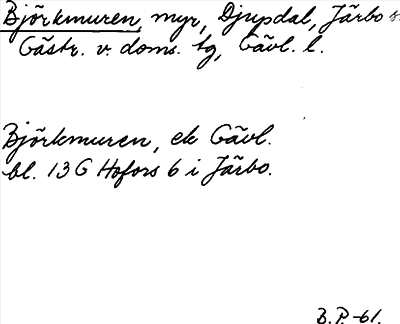 Björkmuren, myr, Djupdal, Järbo s
Gästr. v. doms. tg, Gävl. l.
Björkmuren, ek Gävl.
bl. 13 G Hofors 6 i Järbo.
B.P.-61.